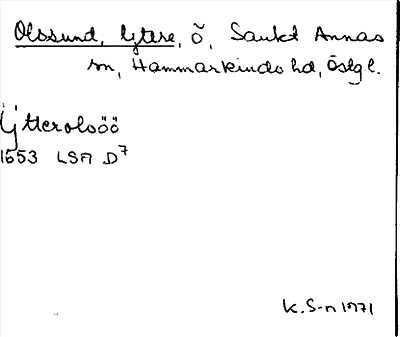 Olssund, Yttre, ö, Sankt Annas
sn, Hammarkinds hd, Östgl.
Ytterolsöö
1653 LSA D7
K.S-n 1971